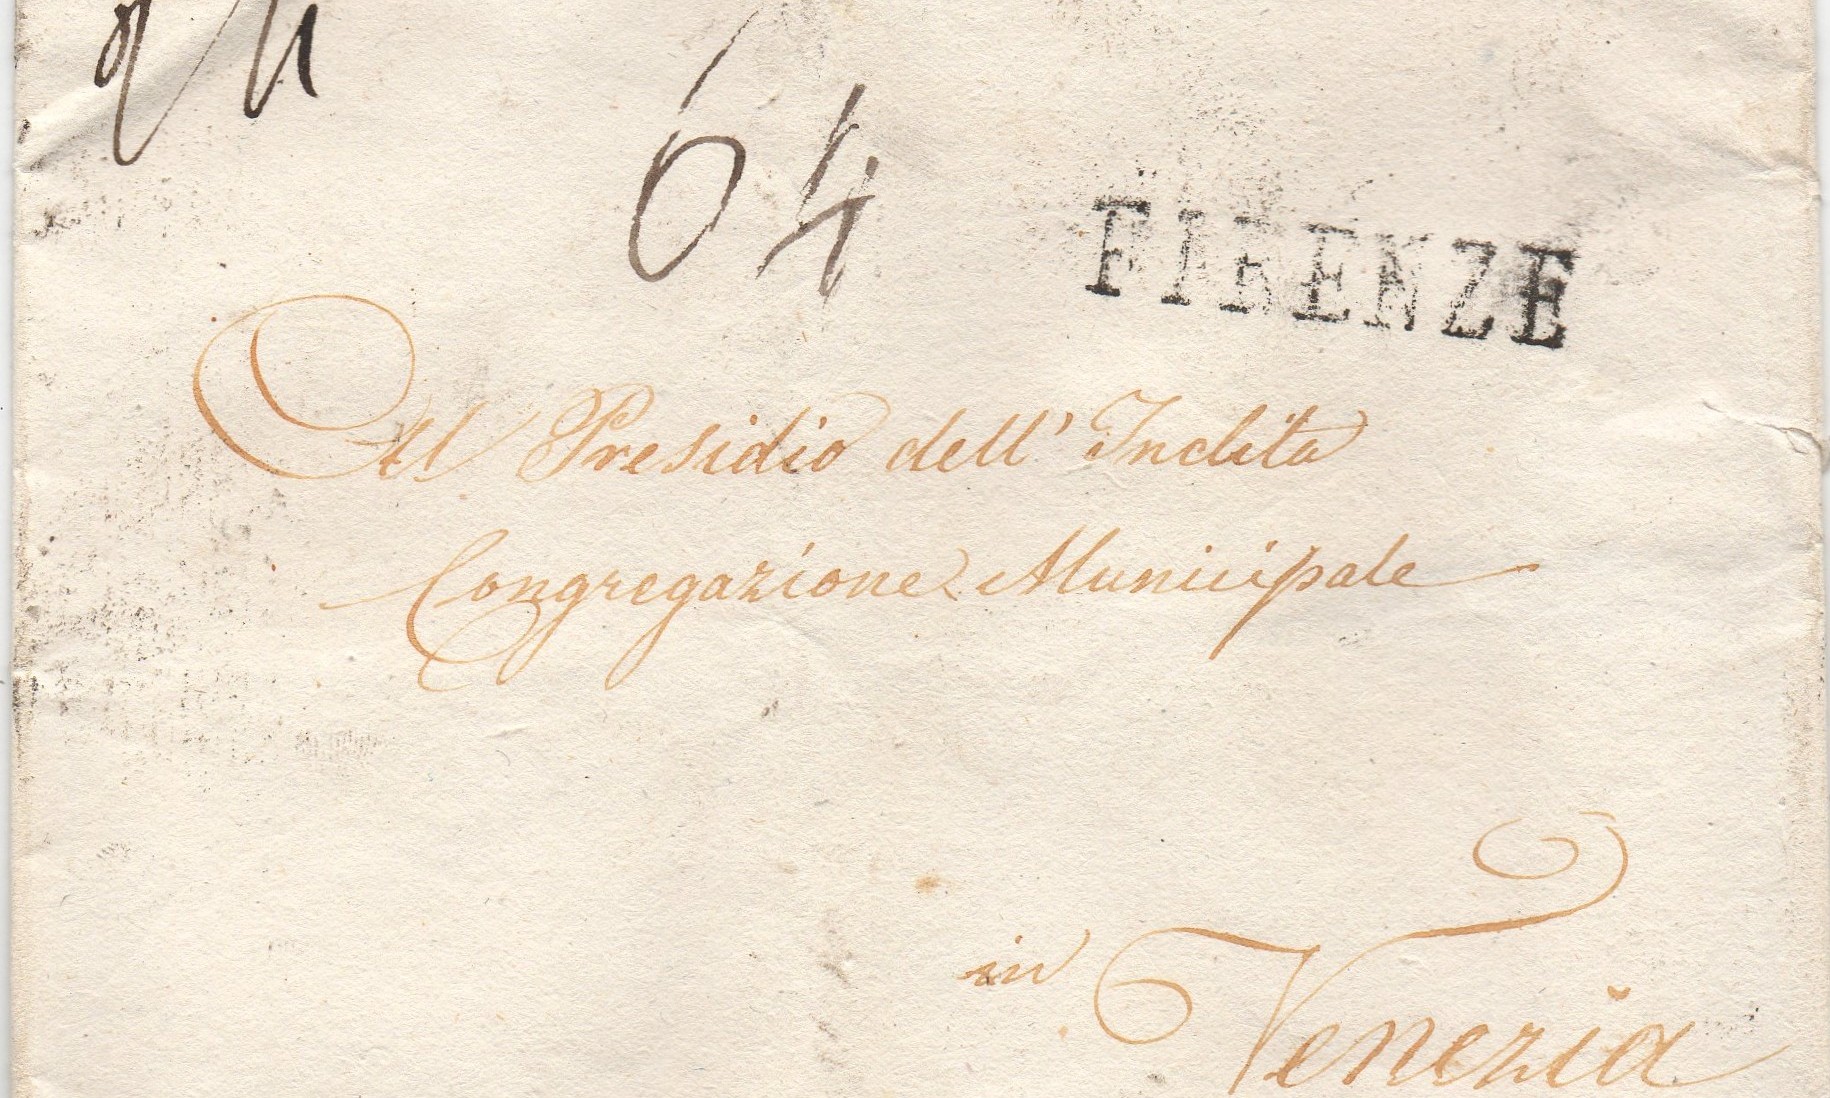 64
FIRENZE
Al Presidio dell' Inclita
Congregazione Municipale
in Venezia